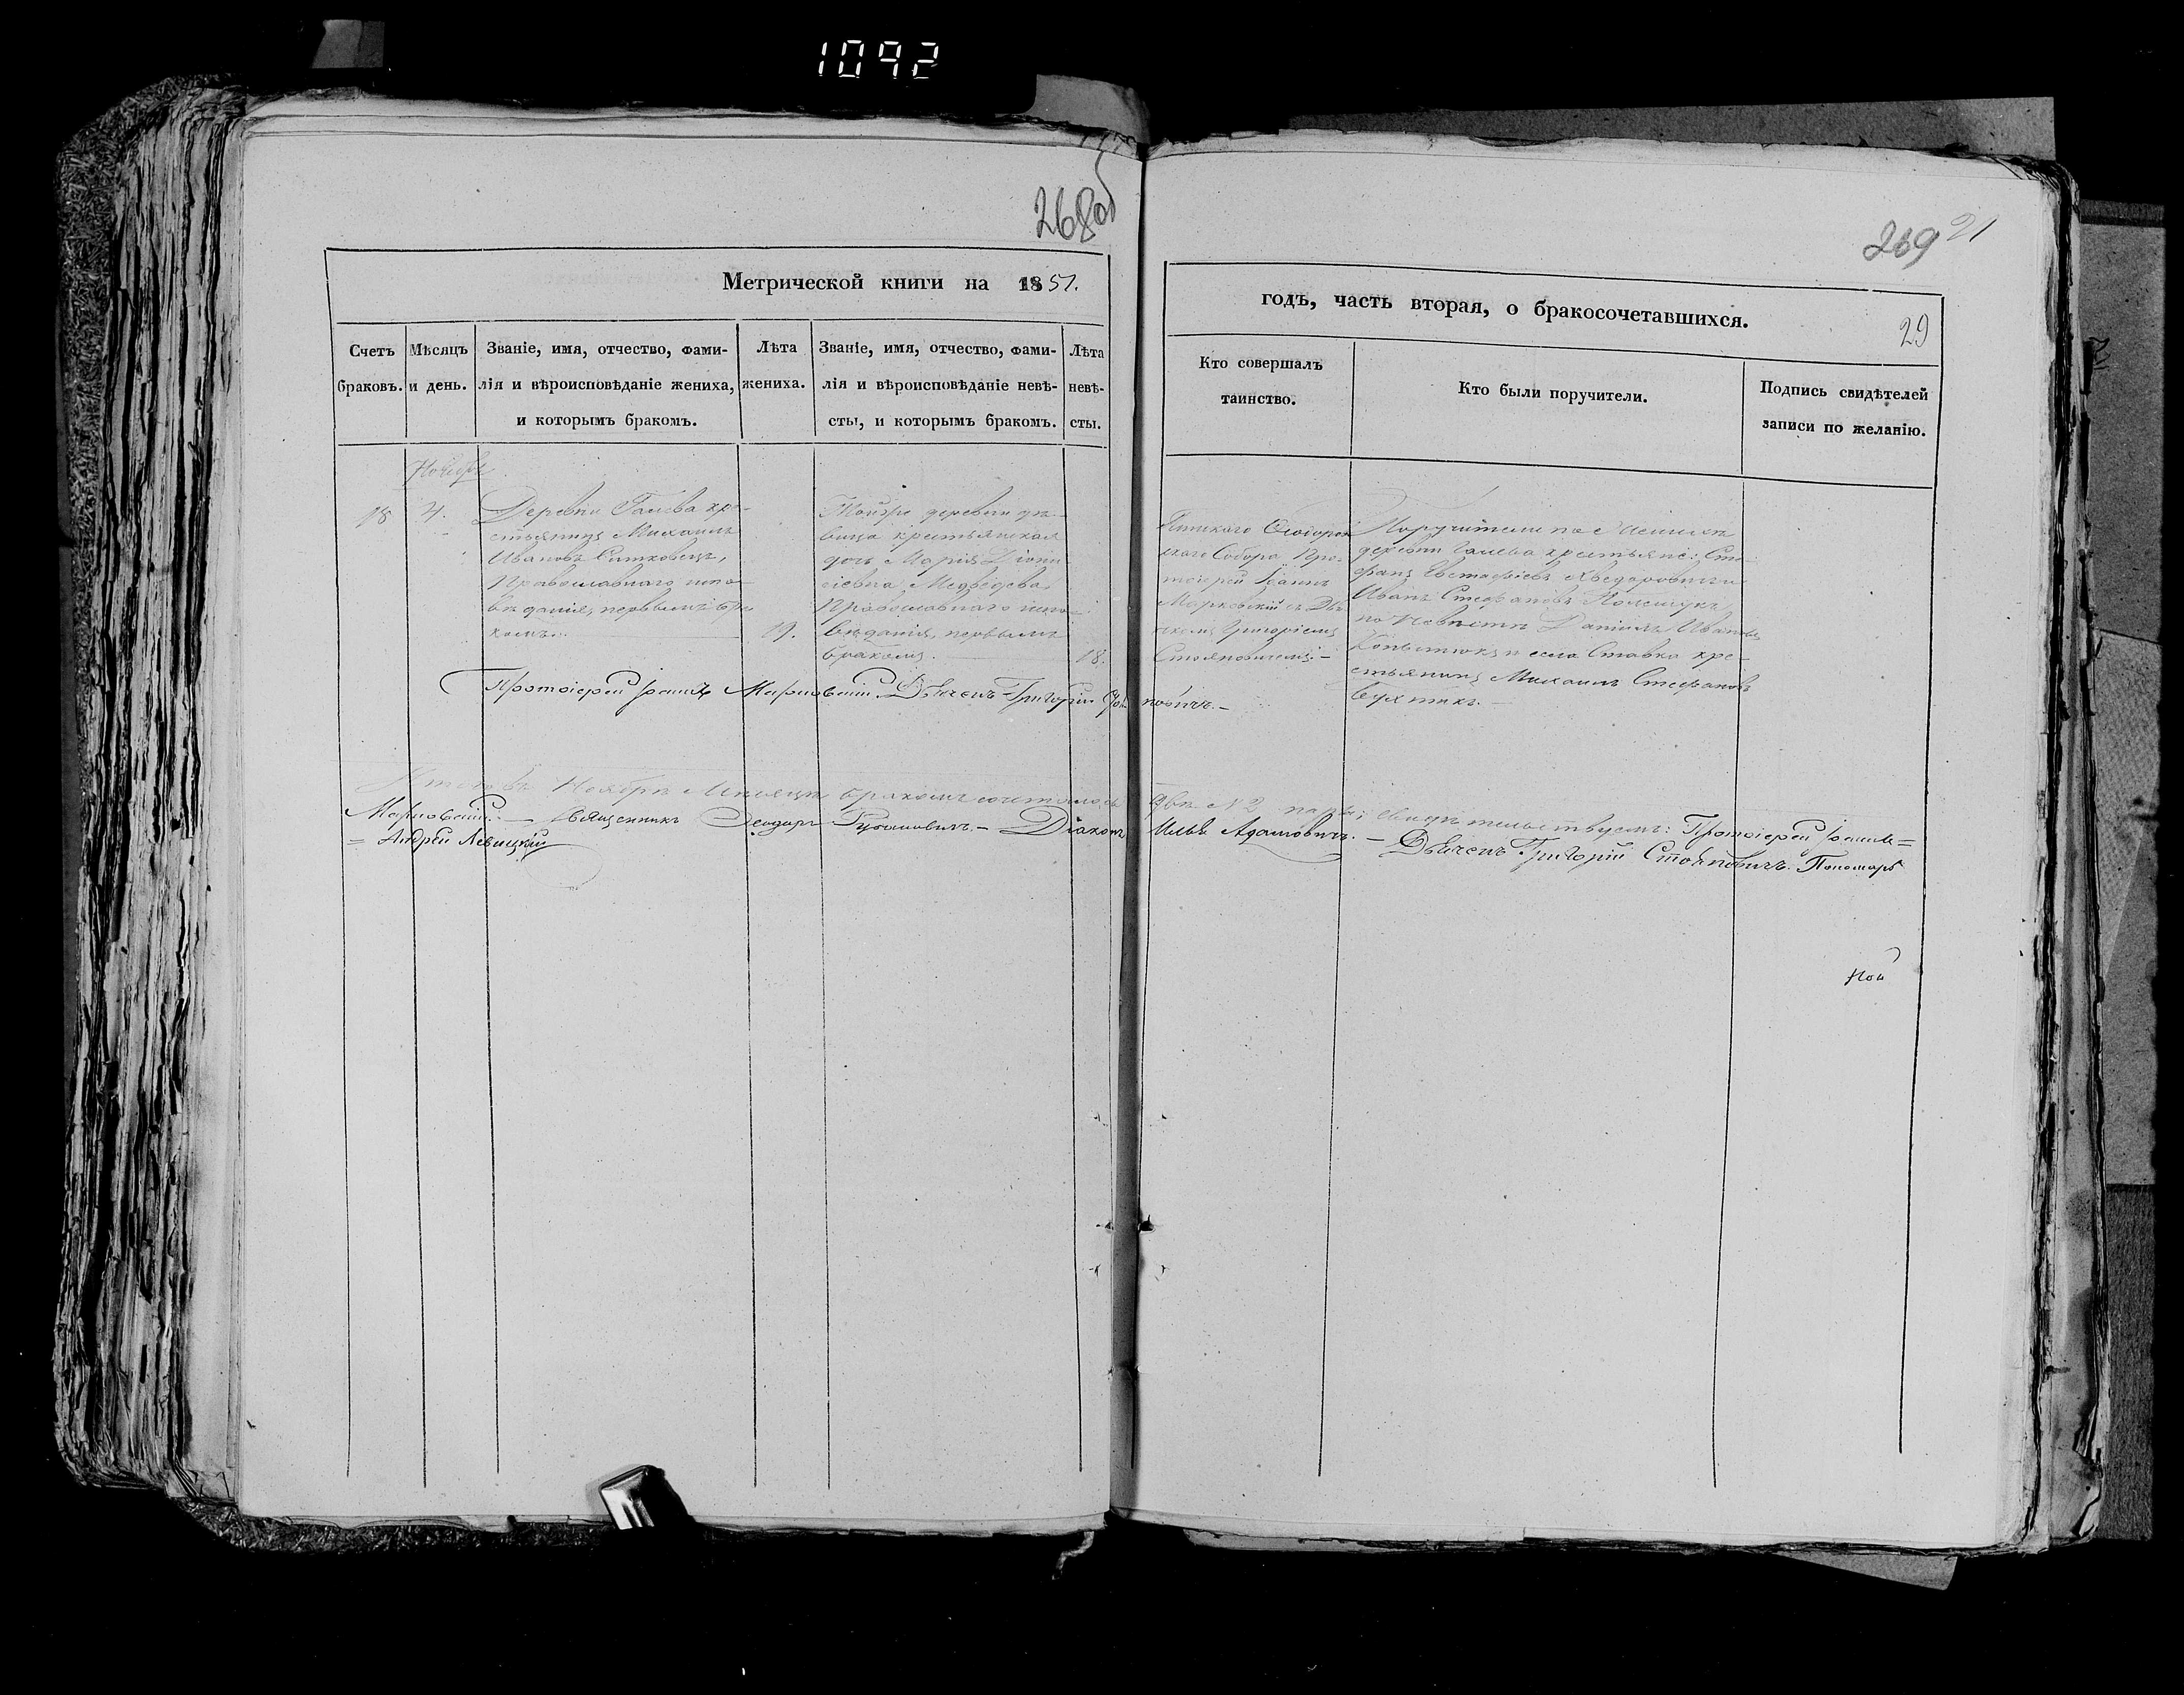 1092
268 об
269 21
29
Метрической книги на 1851.
годъ, часть вторая, о бракосочетавшихся.
Счетъ браковъ.
Мѣсяцъ и день.
Званіе, имя, отчество, фами-
лія и вѣроисповѣданіе жениха,
и которымъ бракомъ.
Лѣта
жениха.
Званіе, имя, отчество, фами-
лія и вѣроисповѣданіе невѣ-
сты, и которымъ бракомъ.
Лѣта
невѣ-
сты.
Кто совершалъ
таинство.
Кто были поручители.
Подпись свидѣтелей
записи по желанію.
Ноябрь
18
4.
Деревни Галева кре-
стьянинъ Михаилъ
Ивановъ Ситковецъ,
Православнаго испо-
вѣданія, первымъ бра
комъ.
19.
Тойже деревни дѣ-
вица крестьянская
дочь Марія Діони-
сіевна Медведева
Православнаго испо-
вѣданія, первымъ
бракомъ.
18.
Пинскаго Ѳеодоров
скаго Собора Про-
тоіерей Іоаннъ
Марковскій съ Дья
чкомъ Григоріемъ
Стояновичемъ.-
Поручители по Женихѣ
деревни Галева крестьяне: Сте-
фанъ Евстафіевъ Хведоровичъ и
Иванъ Стефановъ Полещукъ,
по Невѣстѣ Даніилъ Ивановъ
и села Ставка кре-
стьянинъ Михаилъ Стефановъ
Бухтикъ.
Протоіерей Іоаннъ Марковскій. Дьячекъ Григорій Стояновичъ.-
Итого въ Ноябрѣ Мѣсяцѣ бракомъ сочеталось двѣ № 2 пары; свидѣтельствуемъ: Протоіерей Іоаннъ=
Марковскій.- Священникъ Ѳеодоръ - Діаконъ Илья Адамовичъ. - Дьячекъ Григорій Стояновичъ. Пономарь
= Андрей Левицкій
Ной